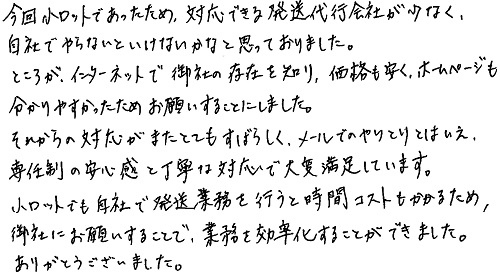 今回小ロットであったため、対応できる発送代行会社が少なく、
自社でやらないといけないかなと思っておりました。
ところが、インターネットで御社の存在を知り、価格も安く、ホームページも
分かりやすかったためお願いすることにしました。
それからの対応がまたとてもすばらしく、メールでのやりとりとはいえ、
専任制の安心感と丁寧な対応で大変満足しています。
小ロットでも自社で発送業務を行うと時間コストもかかるため、
御社にお願いすることで、業務を効率化することができました。
ありがとうございました。